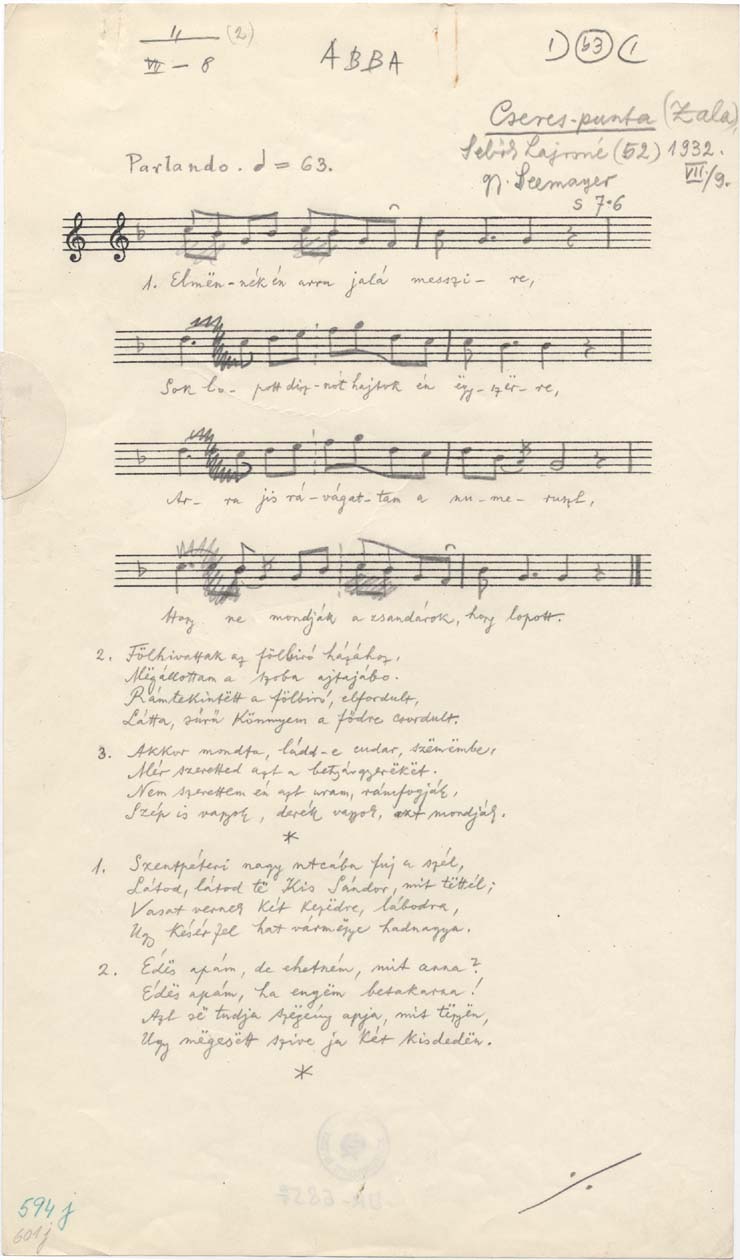 11 (2)
VII – 8
ABBA
1) b3 (1
Cseres-puszta (Zala)
Sebők Lajosné (52) 1932.
gy. Seemayer VII./9.
s 7·6
Parlando. = 63.
1. Elmën-nék én arra jalá messzi- re,
Sok lo- pott disz-nót hajtok én ëgy-szër-re,
Ar- ra jis rá-vágat-tam a nu-me-ruszt,
Hogy ne mondják a zsandárok, hogy lopott.
2. Fölhivattak az fölbiró házához,
Mëgállottam a szoba ajtajábo.
Rámtekintëtt a fölbiró, elfordult,
Látta, sürü könnyem a födre csordult.
3. Akkor mondta, ládd-e cudar, szëmëmbe,
Mér szeretted azt a betyárgyerëkët.
Nem szerettem én azt uram, ránfogják,
Szép is vagyok, derék vagyok, azt mondják.
*
1. Szentpéteri nagy utcába fuj a szél,
Látod, látod të Kis Sándor, mit tëttél;
Vasat vernek két kezedre, lábodra,
Ugy késér fel hat vármëgye hadnagya.
2. Édës apám, de ehetném, mit anna?
Édës apám, ha engëm betakarna!
Azt së tudja szëgény apja, mit tëgyën,
Ugy mëgesëtt szive ja két kisdedën.
*
594 j
601 j